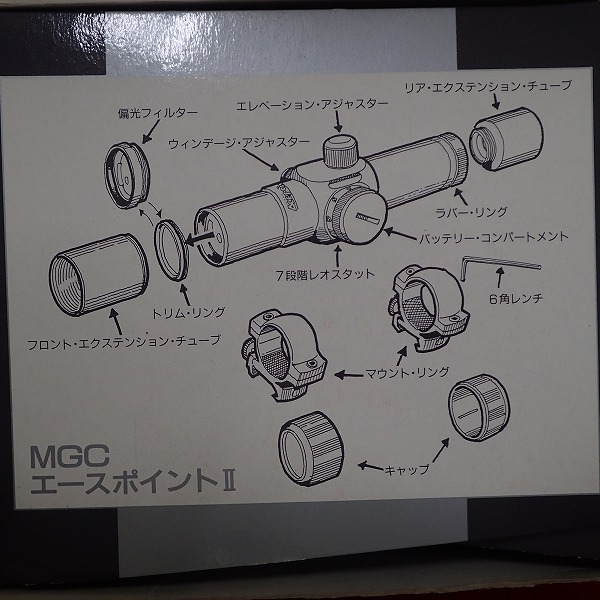 リア・エクステンション・チューブ
エレベーション・アジャスター
偏光フィルター
ウィンデージ・アジャスター
ラバー・リング
バッテリー・コンパートメント
7段階レオスタット
6角レンチ
トリム・リング
フロント・エクステンション・チューブ
マウント・リング
キャップ
MGC
エースポイントⅡ